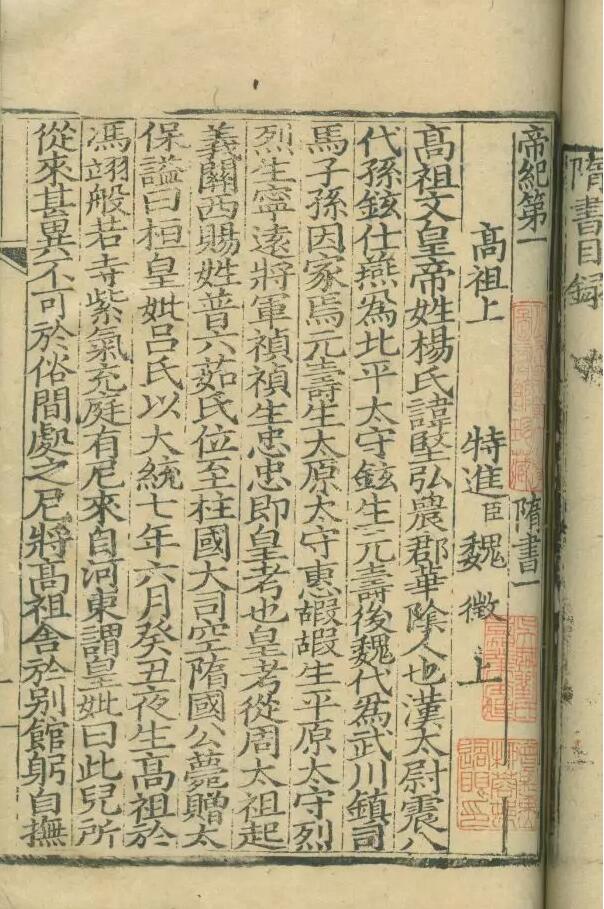 隋書目録
帝紀第一 隋書一
髙祖上 特進臣魏徵上
髙祖文皇帝姓楊氏諱堅弘農郡華隂人也漢太尉震八
代孫鉉仕燕為北平太守鉉生元壽後魏代為武川鎮司
馬子孫因家焉元壽生太原太守惠嘏嘏生平原太守烈
烈生寧遠將軍禎禎生忠忠即皇考也皇考從周太祖起
義關西賜姓普六茹氏位至柱國大司空隋國公薨贈太
保謚曰桓皇妣吕氏以大統七年六月癸丑夜生髙祖於
馮翊般若寺紫氣充庭有尼來自河東謂皇妣曰此兒所
從來甚異不可於俗間處之尼將髙祖舍於别館躬自撫